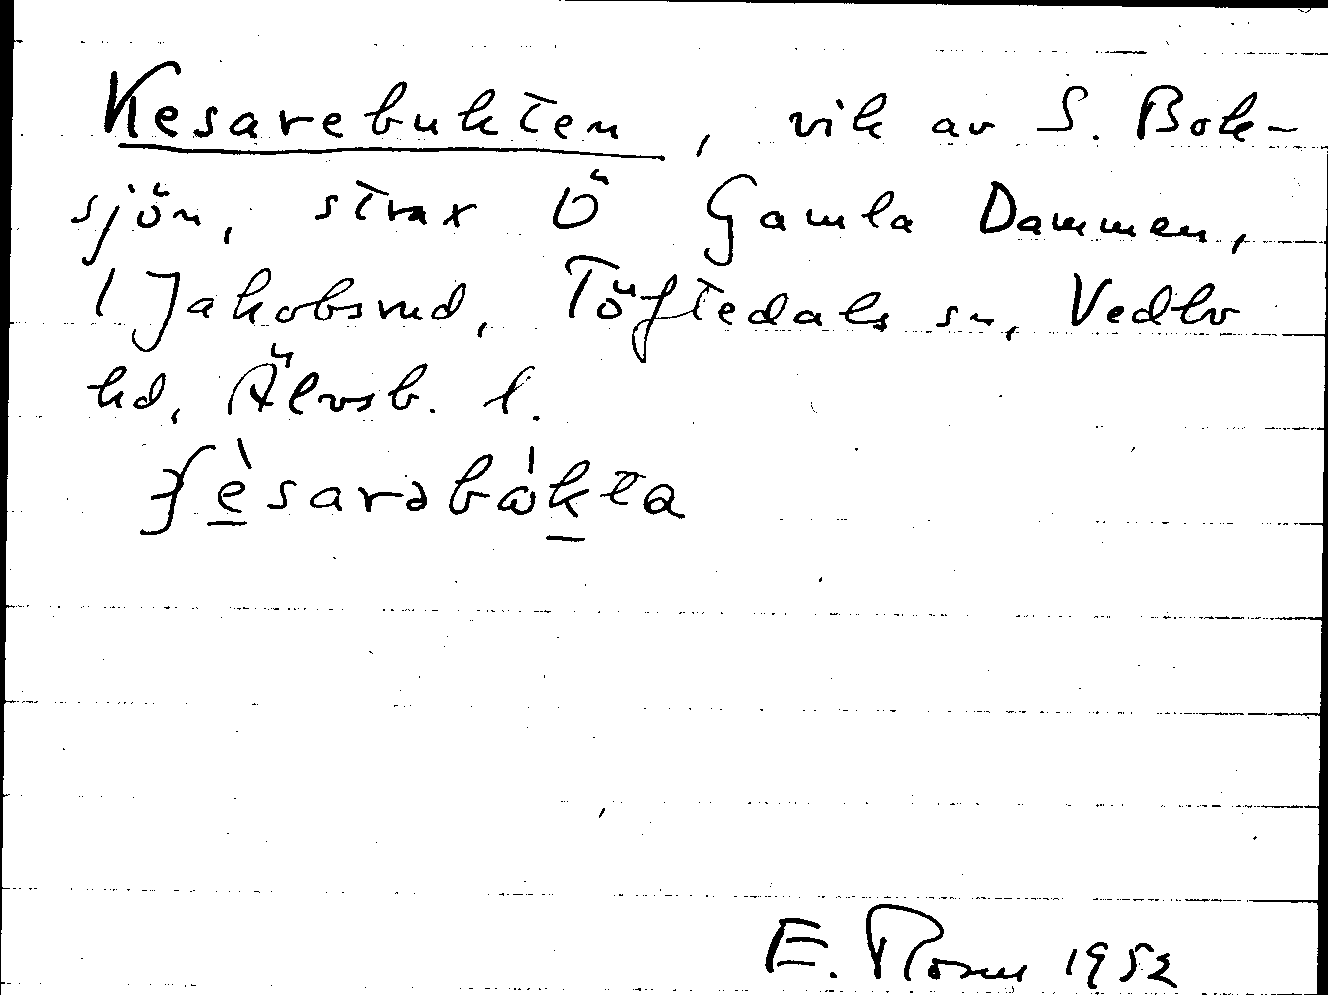 Kesarebukten, vik av S. Bok-
sjön, strax Ö Gamla Dammen,
1 Jakobsrud, Töftedals sn, Vedbo
hd, Älvsb. l.
E. Rosen 1952